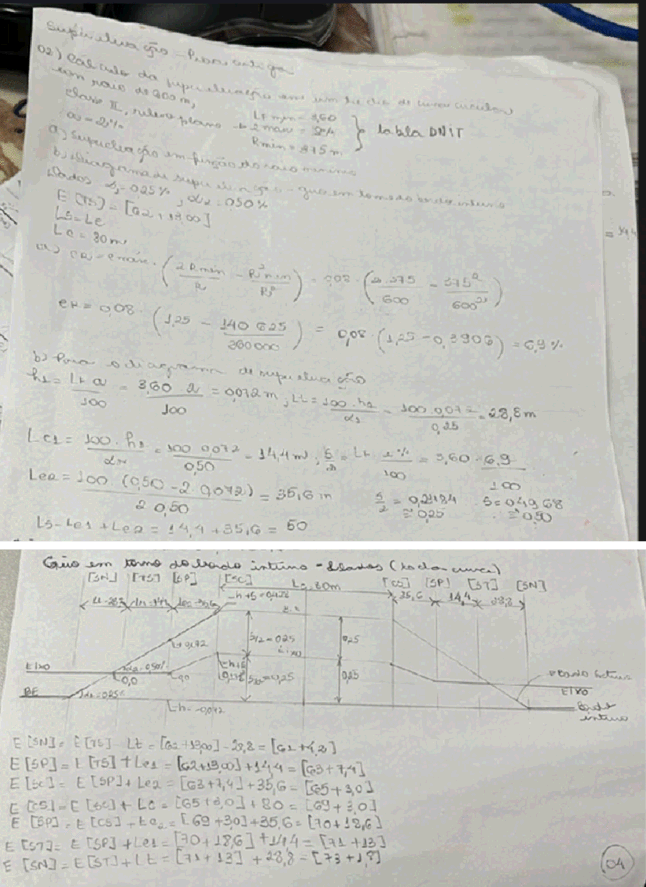 Superelevação - Prova antiga
02) Cálculo da superelevação em um trecho de curva circular
com raio de 600 m,
classe II, relevo plano → Lt min = 3,60
a = 2% e max = 8%
Rmin = 375 m
tabela DNIT
a) Superelevação em função do raio mínimo
b) Diagrama de superelevação - giro em torno do bordo interno
Dados α1 = 0,25%, α2 = 0,50%
E [TS] = [62 + 13,00]
Ls = Le
Lc = 80 m
a) eR = emáx. (2Rmin/R - R²min/R²) = 0,08 . (2.375/600 - 375²/600²)
eR = 0,08 . (1,25 - 140 625/360000) = 0,08 . (1,25 - 0,3906) = 6,9%
b) Para o diagrama de superelevação
h1 = Lt a/100 = 3,60 . 2/100 = 0,072 m ; Lt = 100.h1/α1 = 100.0,072/0,25 = 28,8 m
Le1 = 100 . h1/α2 = 100 0,072/0,50 = 14,4 m ; S/2 = Lt e%/100 = 3,60 . 6,9/100
Le2 = 100 (0,50 - 2 0,072)/2 0,50 = 35,6 m S/2 = 0,2484 S = 0,4968
≅ 0,25 ∴ ≅ 0,50
Ls = Le1 + Le2 = 14,4 + 35,6 = 50
= 14,4
Giro em torno do bordo interno - (lado curva)
[SN] [TS] [SP] [SC] Lc = 80m [CS] [SP] [ST] [SN]
35,6 14,4 28,8
0,072
S/2 = 0,25 0,25
EIXO
EIXO
0,0
S/2 = 0,25 0,25
EIXO
BE
Bordo interno
E [SN] = E [TS] - Lt = [62 + 13,00] - 28,8 = [61 + 4,2]
E [SP] = E [TS] + Le1 = [62 + 13,00] + 14,4 = [63 + 7,4]
E [SC] = E [SP] + Le2 = [63 + 7,4] + 35,6 = [65 + 3,0]
E [CS] = E [SC] + Lc = [65 + 3,0] + 80 = [69 + 3,0]
E [SP] = E [CS] + Le2 = [69 + 3,0] + 35,6 = [70 + 18,6]
E [ST] = E [SP] + Le1 = [70 + 18,6] + 14,4 = [71 + 13]
E [SN] = E [ST] + Lt = [71 + 13] + 28,8 = [73 + 1,8]
04